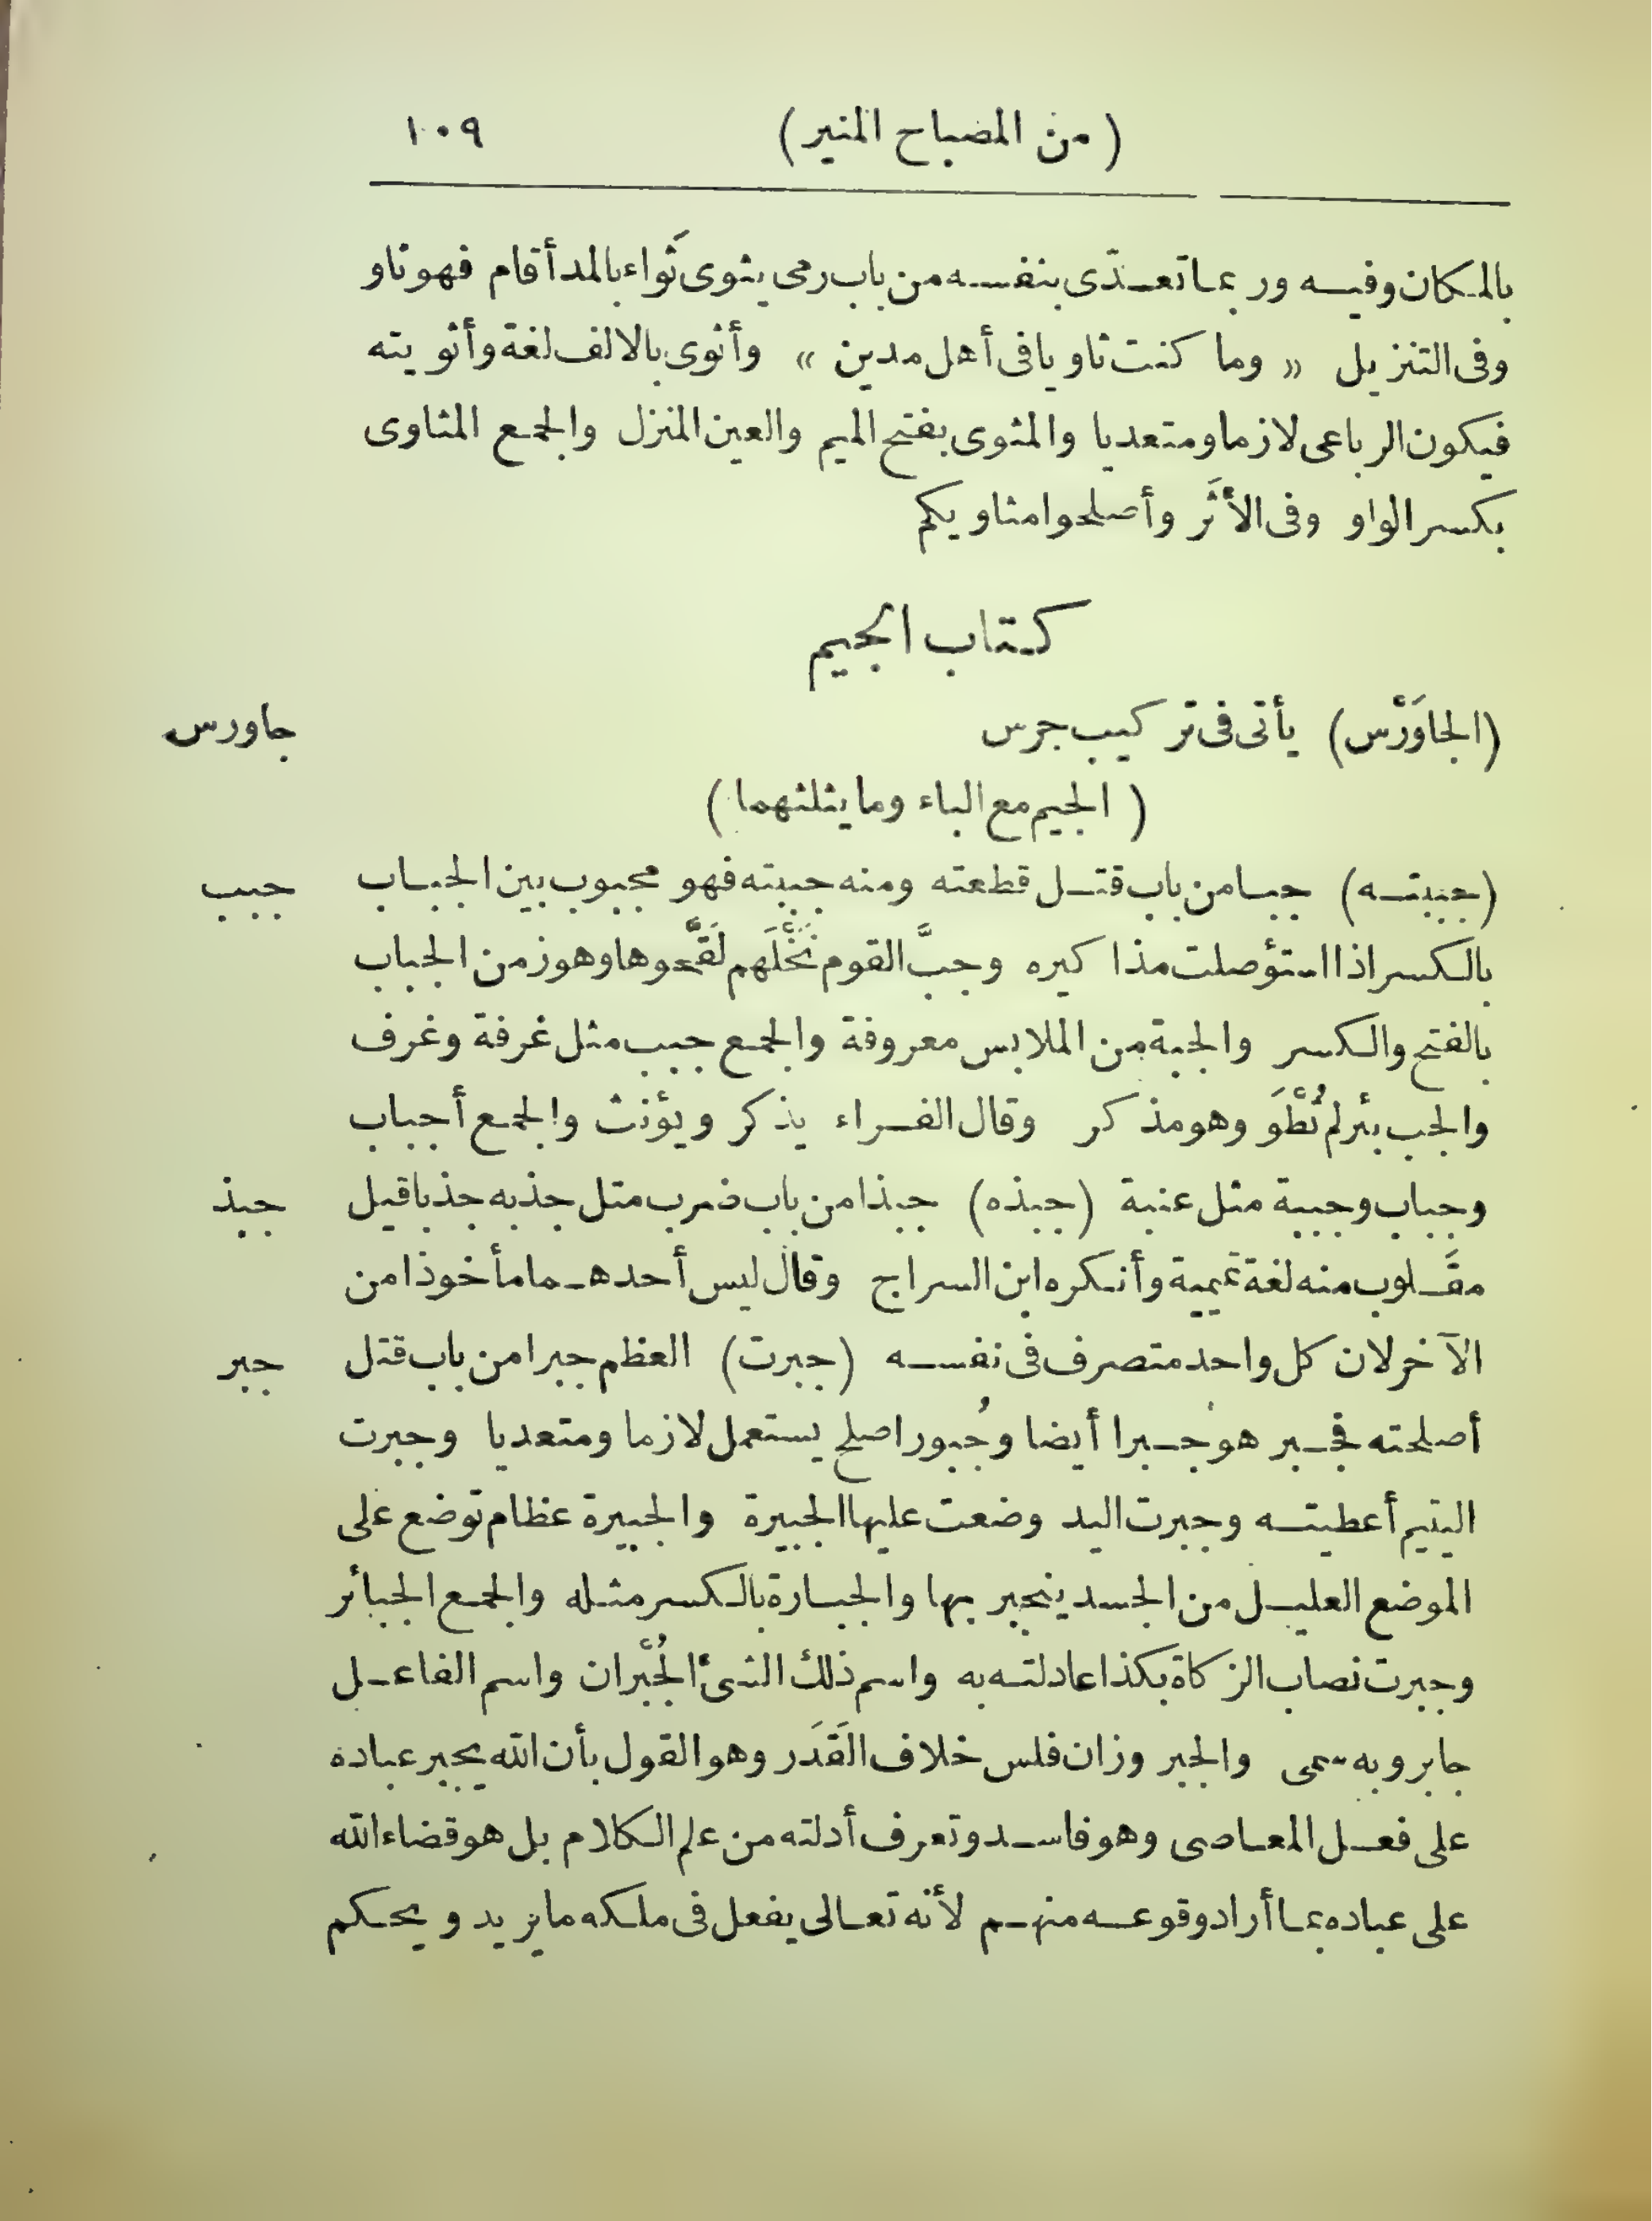 (من المصباح المنير) ١٠٩
بالمكان وفيه وربما تعدّى بنفسه من باب رمى يثوى ثَواء بالمد أقام فهو ثاو
وفى التنزيل « وما كنت ثاويا فى أهل مدين » وأثوى بالالف لغة وأثويته
فيكون الرباعى لازما ومتعديا والمثوى بفتح الميم والعين المنزل والجمع المثاوى
بكسر الواو وفى الأثَر وأصلحوا مثاويكم
كتاب الجيم
(الجاوَرْس) يأتى فى تركيب جرس جاورس
(الجيم مع الباء وما يثلثهما)
(جببته) جبا من باب قتل قطعته ومنه جببته فهو مجبوب بين الجباب جبب
بالكسر اذا استؤصلت مذاكيره وجبَّ القوم نَخْلَهم لَقَّحوها وهو زمن الجباب
بالفتح والكسر والجبة من الملابس معروفة والجمع جبب مثل غرفة وغرف
والجب بئر لم تُطْوَ وهو مذكر وقال الفراء يذكر ويؤنث والجمع أجباب
وجباب وجببة مثل عنبة (جبذه) جبذا من باب ضرب مثل جذبه جذبا قيل جبذ
مقلوب منه لغة تميمية وأنكره ابن السراج وقال ليس أحدهما مأخوذا من
الآخر لان كل واحد متصرف فى نفسه (جبرت) العظم جبرا من باب قتل جبر
أصلحته فجبر هو جبرا أيضا وجُبورا صلح يستعمل لازما ومتعديا وجبرت
اليتيم أعطيته وجبرت اليد وضعت عليها الجبيرة والجبيرة عظام توضع على
الموضع العليل من الجسد ينجبر بها والجبارة بالكسر مثله والجمع الجبائر
وجبرت نصاب الزكاة بكذا عادلته به واسم ذلك الشئ الجُبْران واسم الفاعل
جابر وبه سمى والجبر وزان فلس خلاف القَدَر وهو القول بأن الله يجبر عباده
على فعل المعاصى وهو فاسد وتعرف أدلته من علم الكلام بل هو قضاء الله
على عباده بما أراد وقوعه منهم لأنه تعالى يفعل فى ملكه ما يريد ويحكم